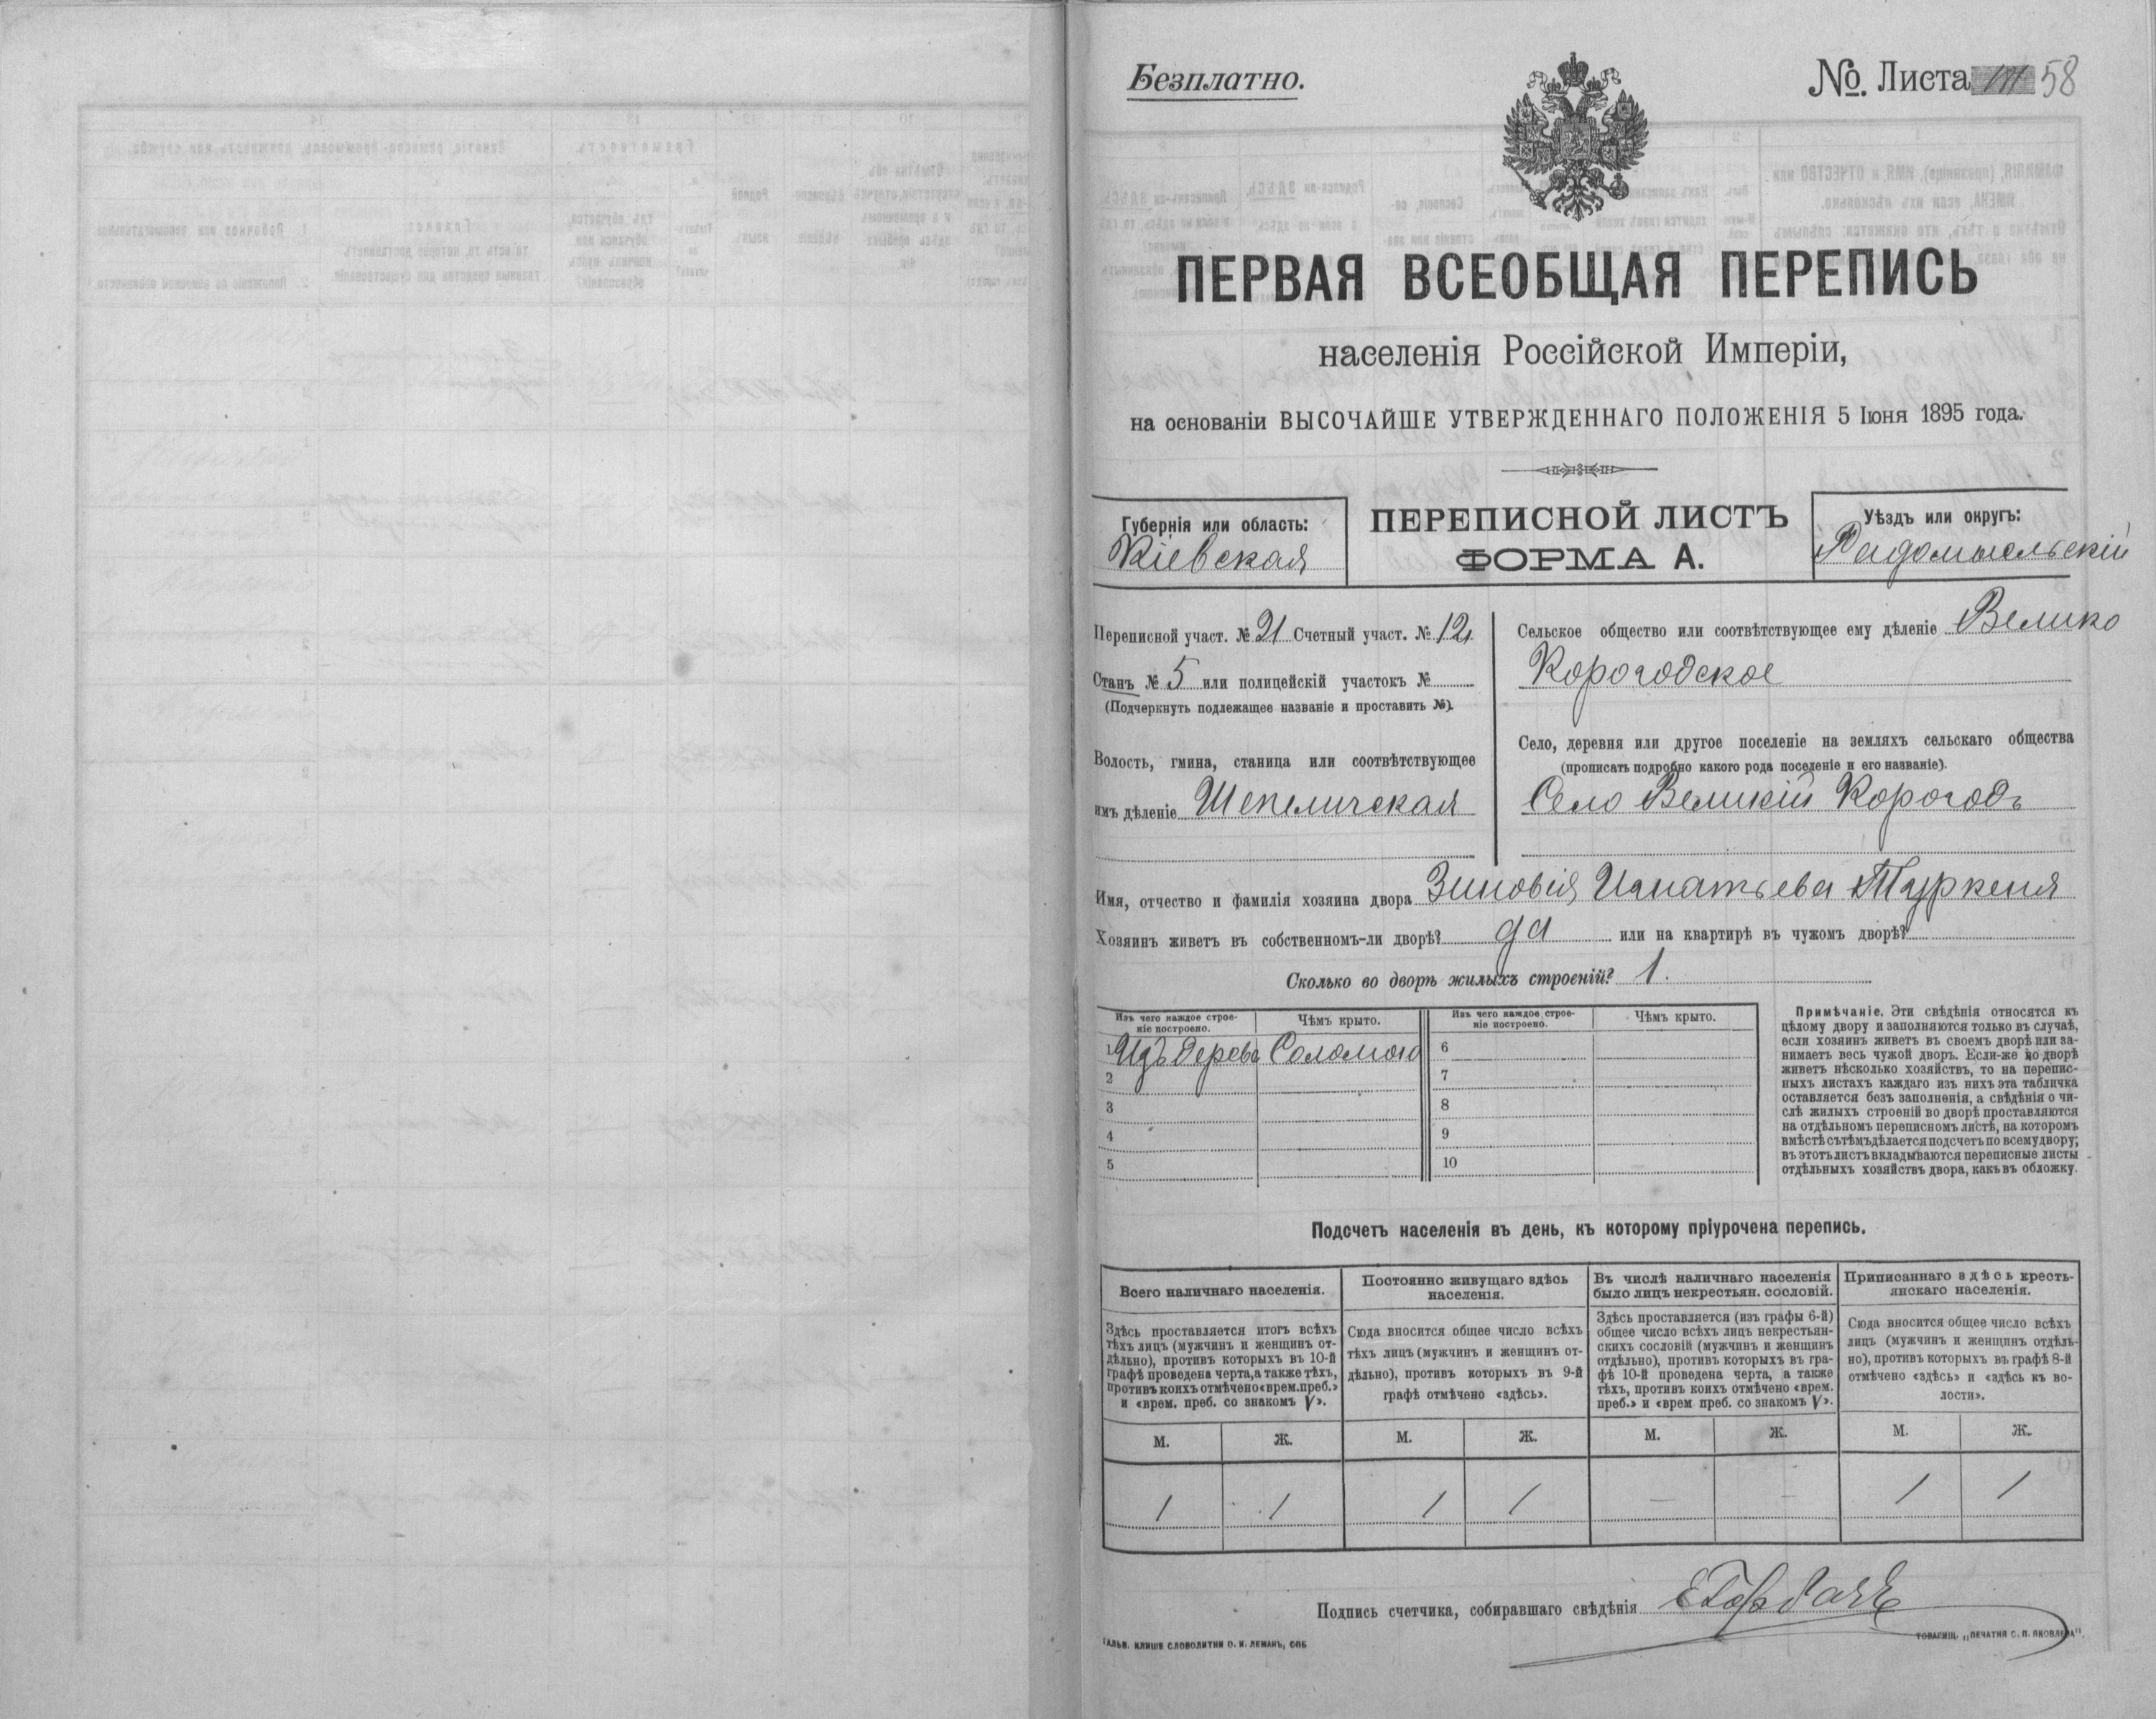 Безплатно.
№. Листа 58
ПЕРВАЯ ВСЕОБЩАЯ ПЕРЕПИСЬ
населенія Россійской Имперіи,
на основаніи ВЫСОЧАЙШЕ УТВЕРЖДЕННАГО ПОЛОЖЕНІЯ 5 Іюня 1895 года.
Губернія или область:
Кіевская
ПЕРЕПИСНОЙ ЛИСТЪ
ФОРМА А.
Уѣздъ или округъ:
Радомысльскій
Переписной участ. № 21 Счетный участ. № 12
Станъ № 5 или полицейскій участокъ №
(Подчеркнуть подлежащее названіе и проставить №).
Волость, гмина, станица или соотвѣтствующее
имъ дѣленіе Шепеличская
Сельское общество или соотвѣтствующее ему дѣленіе Велико
Корогодское
Село, деревня или другое поселеніе на земляхъ сельскаго общества
(прописать подробно какого рода поселеніе и его названіе).
Село Великій Корогодъ
Имя, отчество и фамилія хозяина двора Зиновія Игнатьева Туркеня
Хозяинъ живетъ въ собственномъ-ли дворѣ? да или на квартирѣ въ чужомъ дворѣ?
Сколько во дворѣ жилыхъ строеній? 1.
Изъ чего каждое строе-
ніе построено.
Чѣмъ крыто.
Изъ чего каждое строе-
ніе построено.
Чѣмъ крыто.
1 Изъ дерева Соломою 6
2 7
3 8
4 9
5 10
Примѣчаніе. Эти свѣдѣнія относятся къ
цѣлому двору и заполняются только въ случаѣ,
если хозяинъ живетъ въ своемъ дворѣ или за-
нимаетъ весь чужой дворъ. Если-же во дворѣ
живетъ нѣсколько хозяйствъ, то на перепис-
ныхъ листахъ каждаго изъ нихъ эта табличка
оставляется безъ заполненія, а свѣдѣнія о чи-
слѣ жилыхъ строеній во дворѣ проставляются
на отдѣльномъ переписномъ листѣ, на которомъ
вмѣстѣ съ тѣмъ дѣлается подсчетъ по всему двору;
въ этотъ листъ вкладываются переписные листы
отдѣльныхъ хозяйствъ двора, какъ въ обложку.
Подсчетъ населенія въ день, къ которому пріурочена перепись.
Всего наличнаго населенія.
Здѣсь проставляется итогъ всѣхъ
тѣхъ лицъ (мужчинъ и женщинъ от-
дѣльно), противъ которыхъ въ 10-й
графѣ проведена черта, а также тѣхъ,
противъ коихъ отмѣчено «врем. преб.»
и «врем. преб. со знакомъ V».
Постоянно живущаго здѣсь
населенія.
Сюда вносится общее число всѣхъ
тѣхъ лицъ (мужчинъ и женщинъ от-
дѣльно), противъ которыхъ въ 9-й
графѣ отмѣчено «здѣсь».
Въ числѣ наличнаго населенія
было лицъ некрестьян. сословій.
Здѣсь проставляется (изъ графы 6-й)
общее число всѣхъ лицъ некрестьян-
скихъ сословій (мужчинъ и женщинъ
отдѣльно), противъ которыхъ въ гра-
фѣ 10-й проведена черта, а также
тѣхъ, противъ коихъ отмѣчено «врем.
преб.» и «врем преб. со знакомъ V».
Приписаннаго здѣсь кресть-
янскаго населенія.
Сюда вносится общее число всѣхъ
лицъ (мужчинъ и женщинъ отдѣль-
но), противъ которыхъ въ графѣ 8-й
отмѣчено «здѣсь» и «здѣсь къ во-
лости».
М. Ж. М. Ж. М. Ж. М. Ж.
1 1 1 1 — — 1 1
Подпись счетчика, собиравшаго свѣдѣнія
ГАЛЬВ. КЛИШЕ СЛОВОЛИТНИ О. И. ЛЕМАНЪ, СПБ
ТОВАРИЩ. „ПЕЧАТНЯ С. П. ЯКОВЛЕВА".